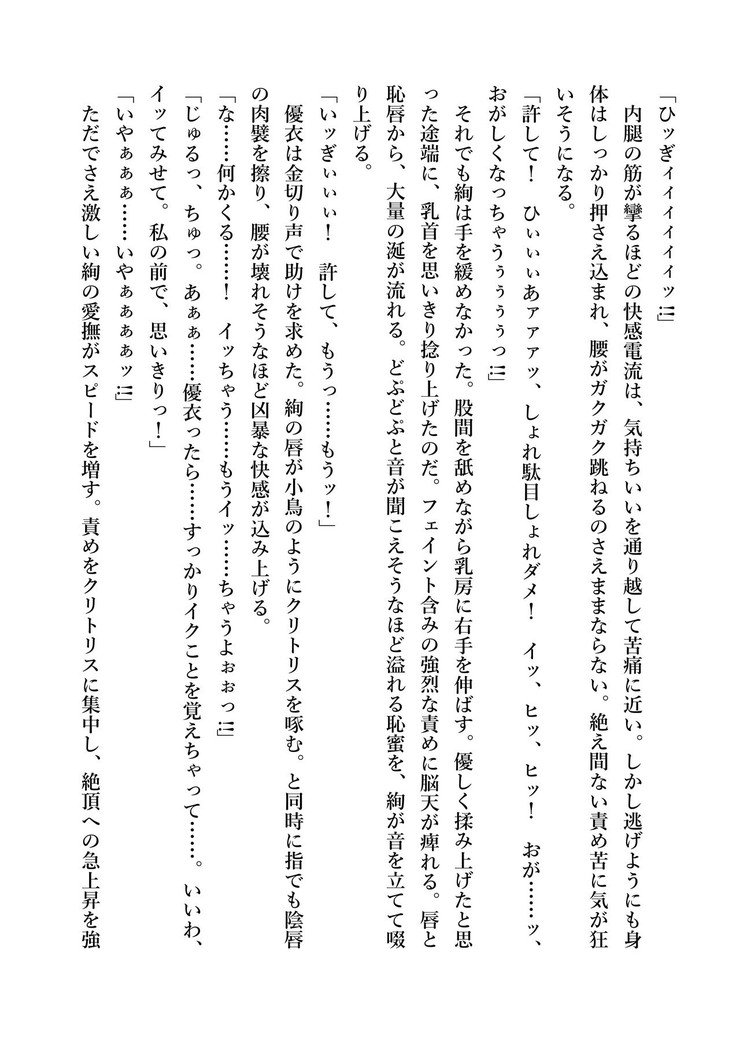 「ひッぎィィィィィィッ!!」
　内腿の筋が攣るほどの快感電流は、気持ちいいを通り越して苦痛に近い。しかし逃げようにも身
体はしっかり押さえ込まれ、腰がガクガク跳ねるのさえままならない。絶え間ない責め苦に気が狂
いそうになる。
「許して！　ひぃぃぃあァァァッ、しょれ駄目しょれダメ！　イッ、ヒッ、ヒッ！　おが……ッ、
おがしくなっちゃうぅぅぅぅっ!!」
　それでも絢は手を緩めなかった。股間を舐めながら乳房に右手を伸ばす。優しく揉み上げたと思
った途端に、乳首を思いきり捻り上げたのだ。フェイント含みの強烈な責めに脳天が痺れる。唇と
恥唇から、大量の涎が流れる。どぷどぷと音が聞こえそうなほど溢れる恥蜜を、絢が音を立てて啜
り上げる。
「いッぎぃぃぃ！　許して、もうっ……もうッ！」
　優衣は金切り声で助けを求めた。絢の唇が小鳥のようにクリトリスを啄む。と同時に指でも陰唇
の肉襞を擦り、腰が壊れそうなほど凶暴な快感が込み上げる。
「な……何かくる……！　イッちゃう……もうイッ……ちゃうよぉぉっ!!」
「じゅるっ、ちゅっ。あぁぁ……優衣ったら……すっかりイクことを覚えちゃって……。いいわ、
イッてみせて。私の前で、思いきりっ！」
「いやぁぁぁ……いやぁぁぁぁッ!!」
　ただでさえ激しい絢の愛撫がスピードを増す。責めをクリトリスに集中し、絶頂への急上昇を強